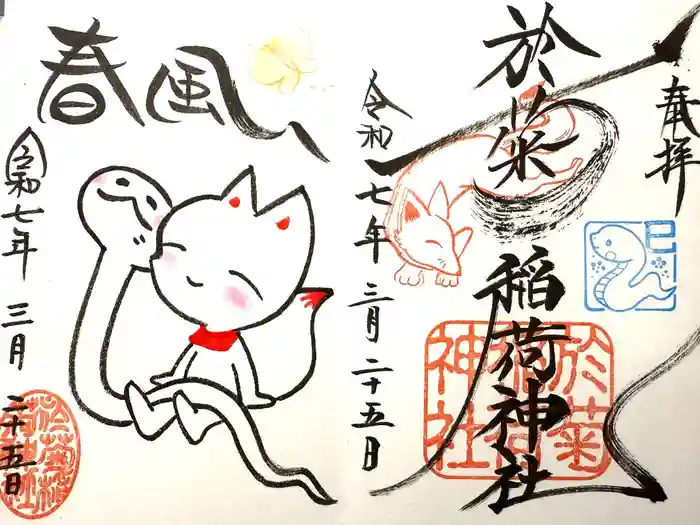 奉拝
於菊稲荷神社
巳
於菊
稲荷
神社
令和七年 三月 二十五日
春風
令和七年 三月 二十五日
於菊稲
荷神社